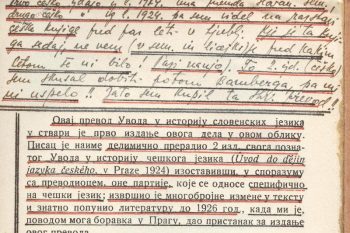 prvo češko izdajo v l. 1914.
drugo češko " " in l. 1924. pa sem videl na razstavi
češke knjige pred par leti v Ljublj. Kje je ta knjiga
to mi bilo!
sem skušal dobiti potom Bamberga, pa mi
ni uspelo! Zato sem kupil ta prevod!
Овај превод Увода у историју словенских језика
у ствари је прво издање овога дела у овом облику.
Писац је наиме делимично прерадио 2 изд. свога позна-
тог Увода у историју чешкога језика (Uvod do dějin
jazyka českého, v Praze 1924) изоставивши, у споразуму
са преводиоцем, оне партије, које се односе специфично
на чешки језик; извршио је многобројне измене у тексту
и знатно попунио литературу до 1926 год., када ми је,
поводом мога боравка у Прагу, дао пристанак за издање
овог превода.